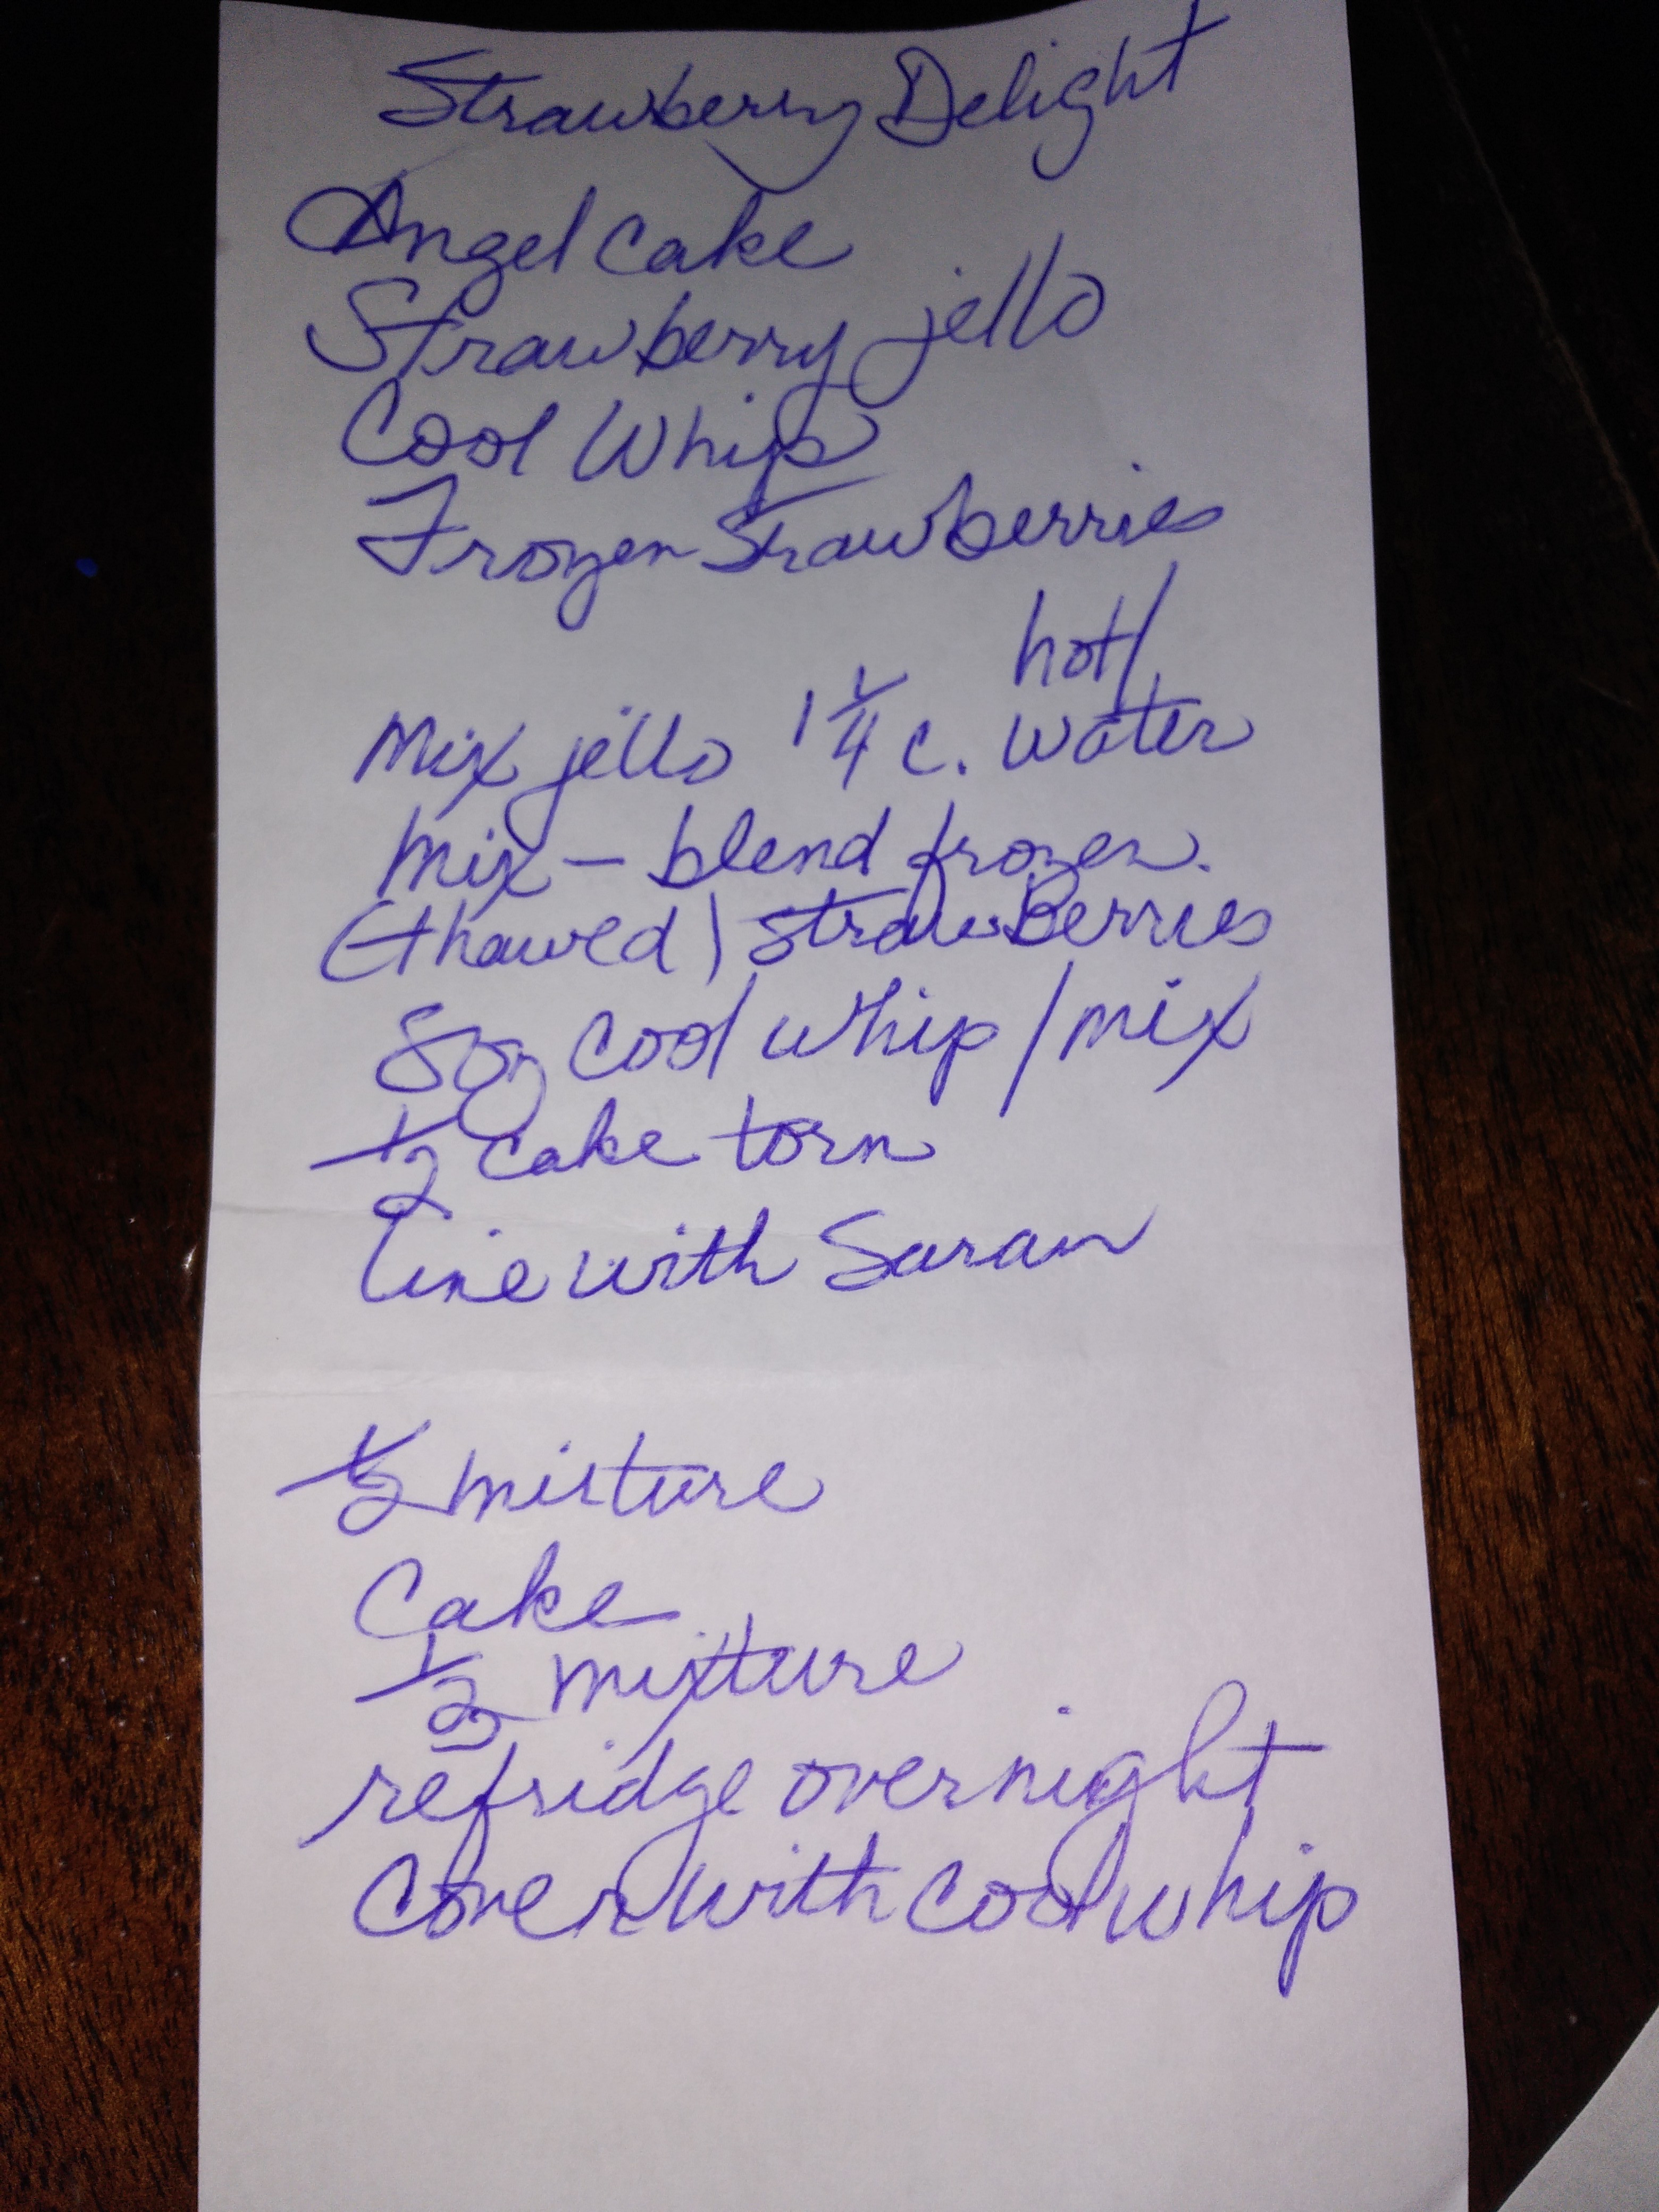 Strawberry Delight
Angel Cake
Strawberry jello
Cool Whip
Frozen Strawberries
hot/
Mix jello 1 1/4 c. water
Mix – blend frozen.
(thawed) strawberries
8oz cool whip / mix
1/2 cake torn
line with Saran
1/2 mixture
Cake
1/2 mixture
refridge overnight
Cover with cool whip